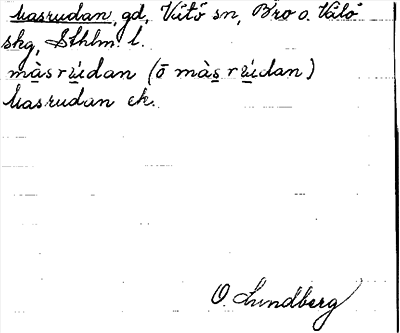 Masrudan, gd, Vätö sn, Bro o. Vätö
skg, Sthlm. l.
màsrúdan (ō màsrúdan)
Masrudan ek.
O. Lundberg